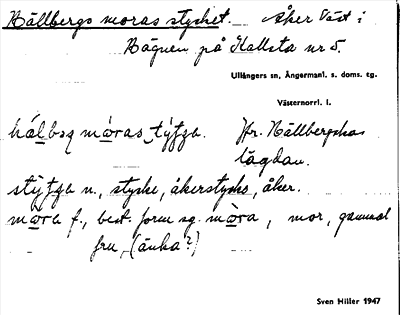 Hällbergs moras stycket. Åker väst i
Bägnen på Hallsta nr 5.
Ullångers sn, Ångermanl. s. doms. tg.
Västernorrl. l.
hálbsg móras týʃga. Jfr. Hällbergskas
lägdan.
stýʃga n., stycke, åkerstycke, åker.
mòra f., best. form sg. mòra, mor, gammal
fru, (änka?)
Sven Hiller 1947